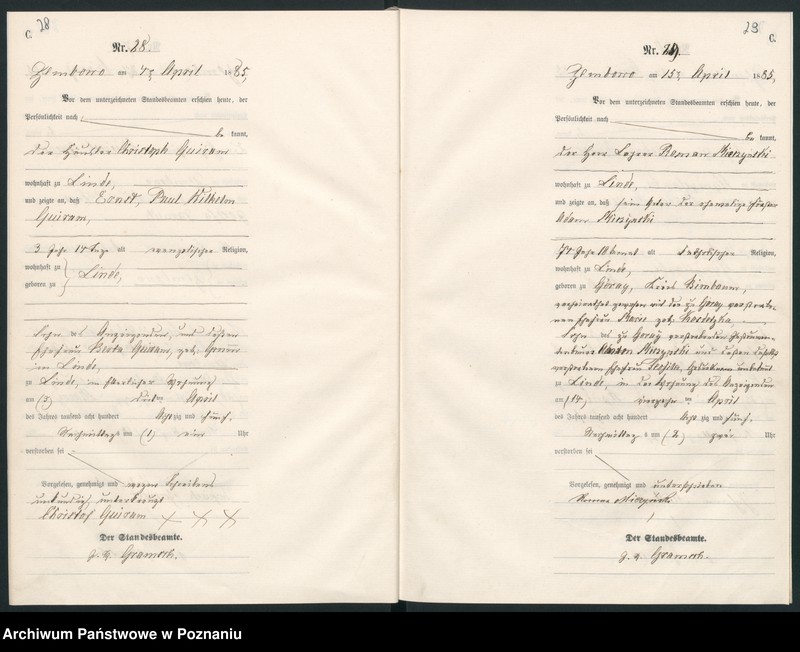 C. 28
Nr. 28.
Zembowo am April 1885,
Vor dem unterzeichneten Standesbeamten erschien heute, der
Persönlichkeit nach
be kannt,
der Häusler Christoph Quiram
wohnhaft zu Linde,
und zeigte an, daß Ernst, Paul Wilhelm
Quiram,
3 Jahr 14 Tage alt evangelischer Religion,
wohnhaft zu
geboren zu
Linde,
Sohn des Anzeigenden, und dessen
Ehefrau Berta Quiram, geb.
in Linde,
zu Linde, in Wohnung
am April
des Jahres tausend acht hundert acht zig und fünf,
Nachmittags um (1) ein Uhr
verstorben sei
Vorgelesen, genehmigt und wegen Schreibens
unkundig, unterkreuzt
Christof Quiram XXX
Der Standesbeamte.
Gramsch.
29 C.
Nr. 29.
Zembowo am 15ten April 1885,
Vor dem unterzeichneten Standesbeamten erschien heute, der
Persönlichkeit nach
be kannt,
der Herr Lehrer Roman
wohnhaft zu Linde,
und zeigte an, daß sein Vater der ehemalige Förster
Adam
Jahr Monat alt katholischer Religion,
wohnhaft zu Linde,
geboren zu Goray, Kreis Birnbaum,
verheirathet gewesen mit der zu Goray verstorbe-
nen Ehefrau geb.
Sohn des zu Goray verstorbenen
und dessen
verstorbenen Ehefrau unbekannt
zu Linde, in der Wohnung des Anzeigenden
am (14) vierzehn ten April
des Jahres tausend acht hundert acht zig und fünf,
Nachmittag s um (2) zwei Uhr
verstorben sei
Vorgelesen, genehmigt und unterschrieben
Roman
Der Standesbeamte.
Gramsch.
Archiwum Państwowe w Poznaniu